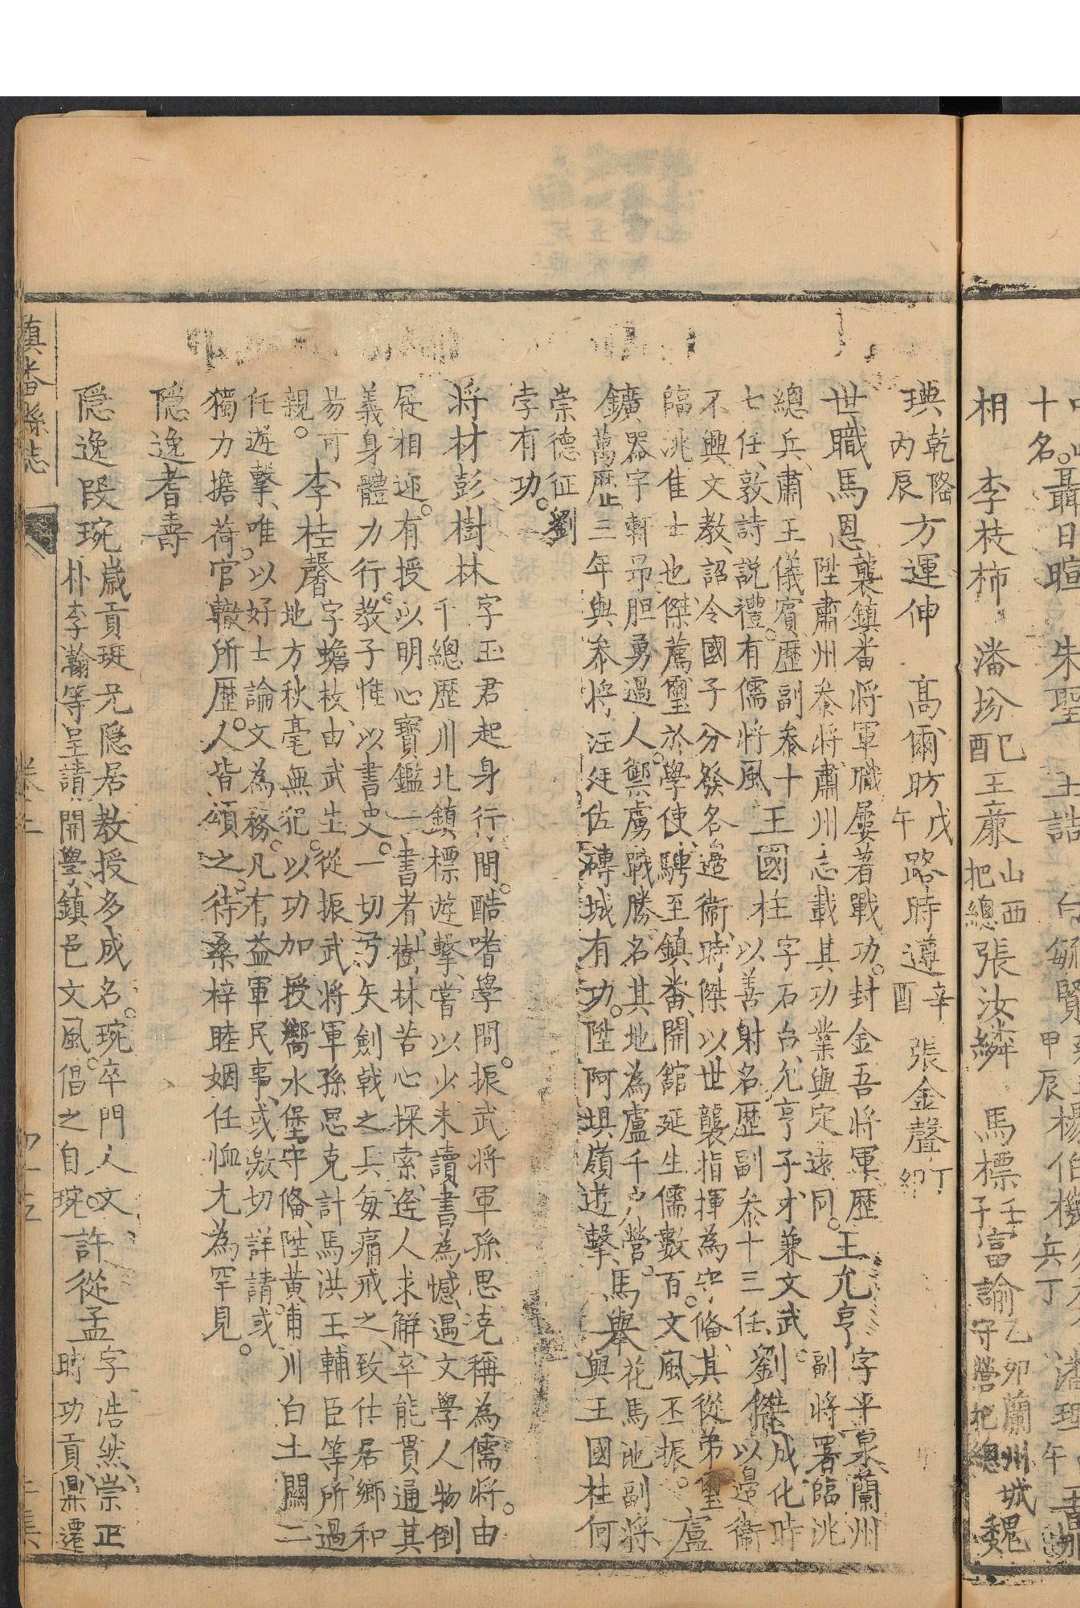 十名。聶日暄　朱聖
楊伯機
兵丁
相　李枝柿　潘扮　己酉　王庶　山西把總　張汝麟　馬標　壬子　富諭　乙卯蘭州城守營把總　魏
璵　乾隆丙辰　方運伸　高爾昉　戊午　路時遵　辛酉　張金聲　丁卯
世職　馬恩　襲鎮番將軍職屢著戰功。封金吾將軍歷陞肅州叅將肅州志載其功業與定遠同。王允亨　字平泉蘭州副將署臨洮
總兵、肅王儀賓歷副叅十七任、敦詩說禮。有儒將風　王國柱　字石台允亨子才兼文武。以善射名歷副叅十三任、劉傑　成化時以邊衛
不興文教、詔令國子分發名邊衛、時傑以世襲指揮為守俻、其從弟璽
臨洮隹士也傑薦璽於學使、騁至鎮番、開舘延生儒數百。文風丕振。盧
鑛　器宇軒昻胆勇過人。禦虜戰勝。名其地為盧千戶營。馬舉　花馬池副將
萬歷三年與叅將汪廷佐磚城有功。陞阿埧嶺遊擊、與王國柱何
崇德征劉
孛有功。
將材　彭樹林　字玉君起身行間。酷嗜學問。振武將軍孫思克稱為儒將。由
千總歷川北鎮標遊擊、嘗以少未讀書為憾、遇文學人物倒
屣相迎。有授以明心寶鑑一書者、樹林苦心探索、逄人求解、卒能貫通其
義身體力行。教子惟以書史。一切弓矢劍戟之具每痛戒之、致仕居鄉和
易可親。　李桂馨　字蟾枝、由武生從振武將軍孫思克計馬洪王輔臣等所過
地方秋毫無犯。以功加授嚮水堡守俻、陞黃甫川白土關二
任遊擊、唯以好士論文為務。凡有益軍民事、或激切詳請。或
獨力擔荷官轍所歷。人皆頌之待桑梓睦婣任恤尤為罕見。
隱逸耆壽
隱逸　段琬　歲貢珽兄隱居教授多成名。琬卒門人文
朴李瀚等呈請開學、鎮邑文風。倡之自琬。許從孟　字浩然、崇正時功貢、鼎遷
鎮番縣志